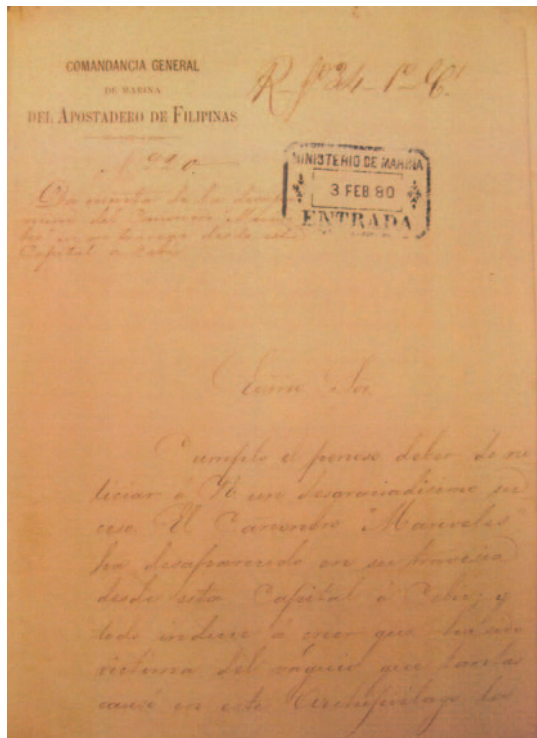 COMANDANCIA GENERAL
DE MARINA
DEL APOSTADERO DE FILIPINAS
MINISTERIO DE MARINA
3 FEB 80
ENTRADA
Da cuenta de la
del Canonero
desde esta
Capital a Cebú
Excmo Sor
Cumplo el penoso deber de no
ticiar á VE un desgraciadisimo su
ceso. El Canonero "Mariveles"
ha desaparecido en su travesia
desde esta Capital á Cebú, y
todo induce á creer que ha sido
victima del váguio que tantas
causó en este Archipiélago los